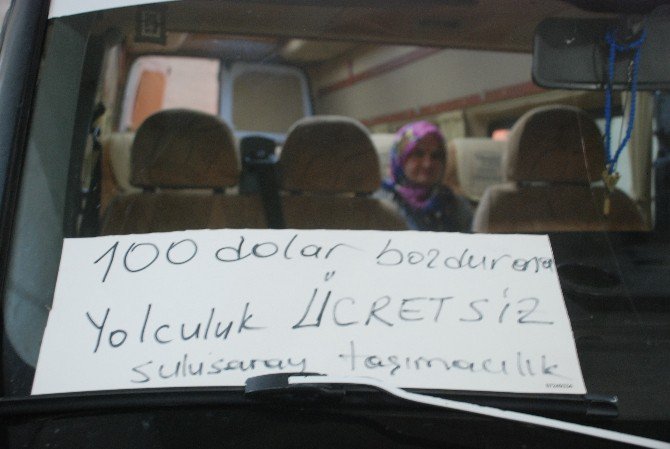 100 dolar bozdurana
Yolculuk ÜCRETSİZ
sulusaray taşımacılık